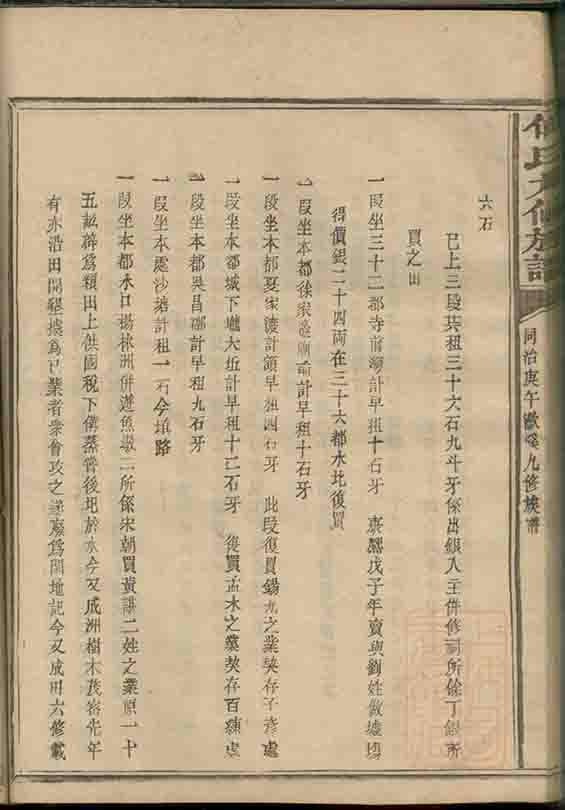 氏大修族譜
同治庚午歙溪九修族譜
六石
已上三段共租三十六石九斗牙係出銀入主併修祠所餘丁銀所
買之田
一段坐三十二都寺前灣計早租十石牙 嘉慶戊子年賣與劉姓做墟塲
得價銀二十四両在三十六都水北復買
一段坐本都徐家 計早租十石牙
一段坐本都夏家渡計額早租四石牙 此段復買錫九之業契存不修處
一段坐本都城下壠大坵計早租十二石牙 復買孟木之業契存百練處
一段坐本都吳昌 計早租九石牙
一段坐本處沙塘計租一石今塡路
一段坐本都水口楊林洲併遊魚墩二所係宋朝買黃謝二姓之業原一十
五畝闢爲類田上供國稅下備蒸嘗後圯於水今又成洲樹木茂密先年
有亦沿田開墾據為已業者衆會攻之遂廢爲閒地記今又成田六修載